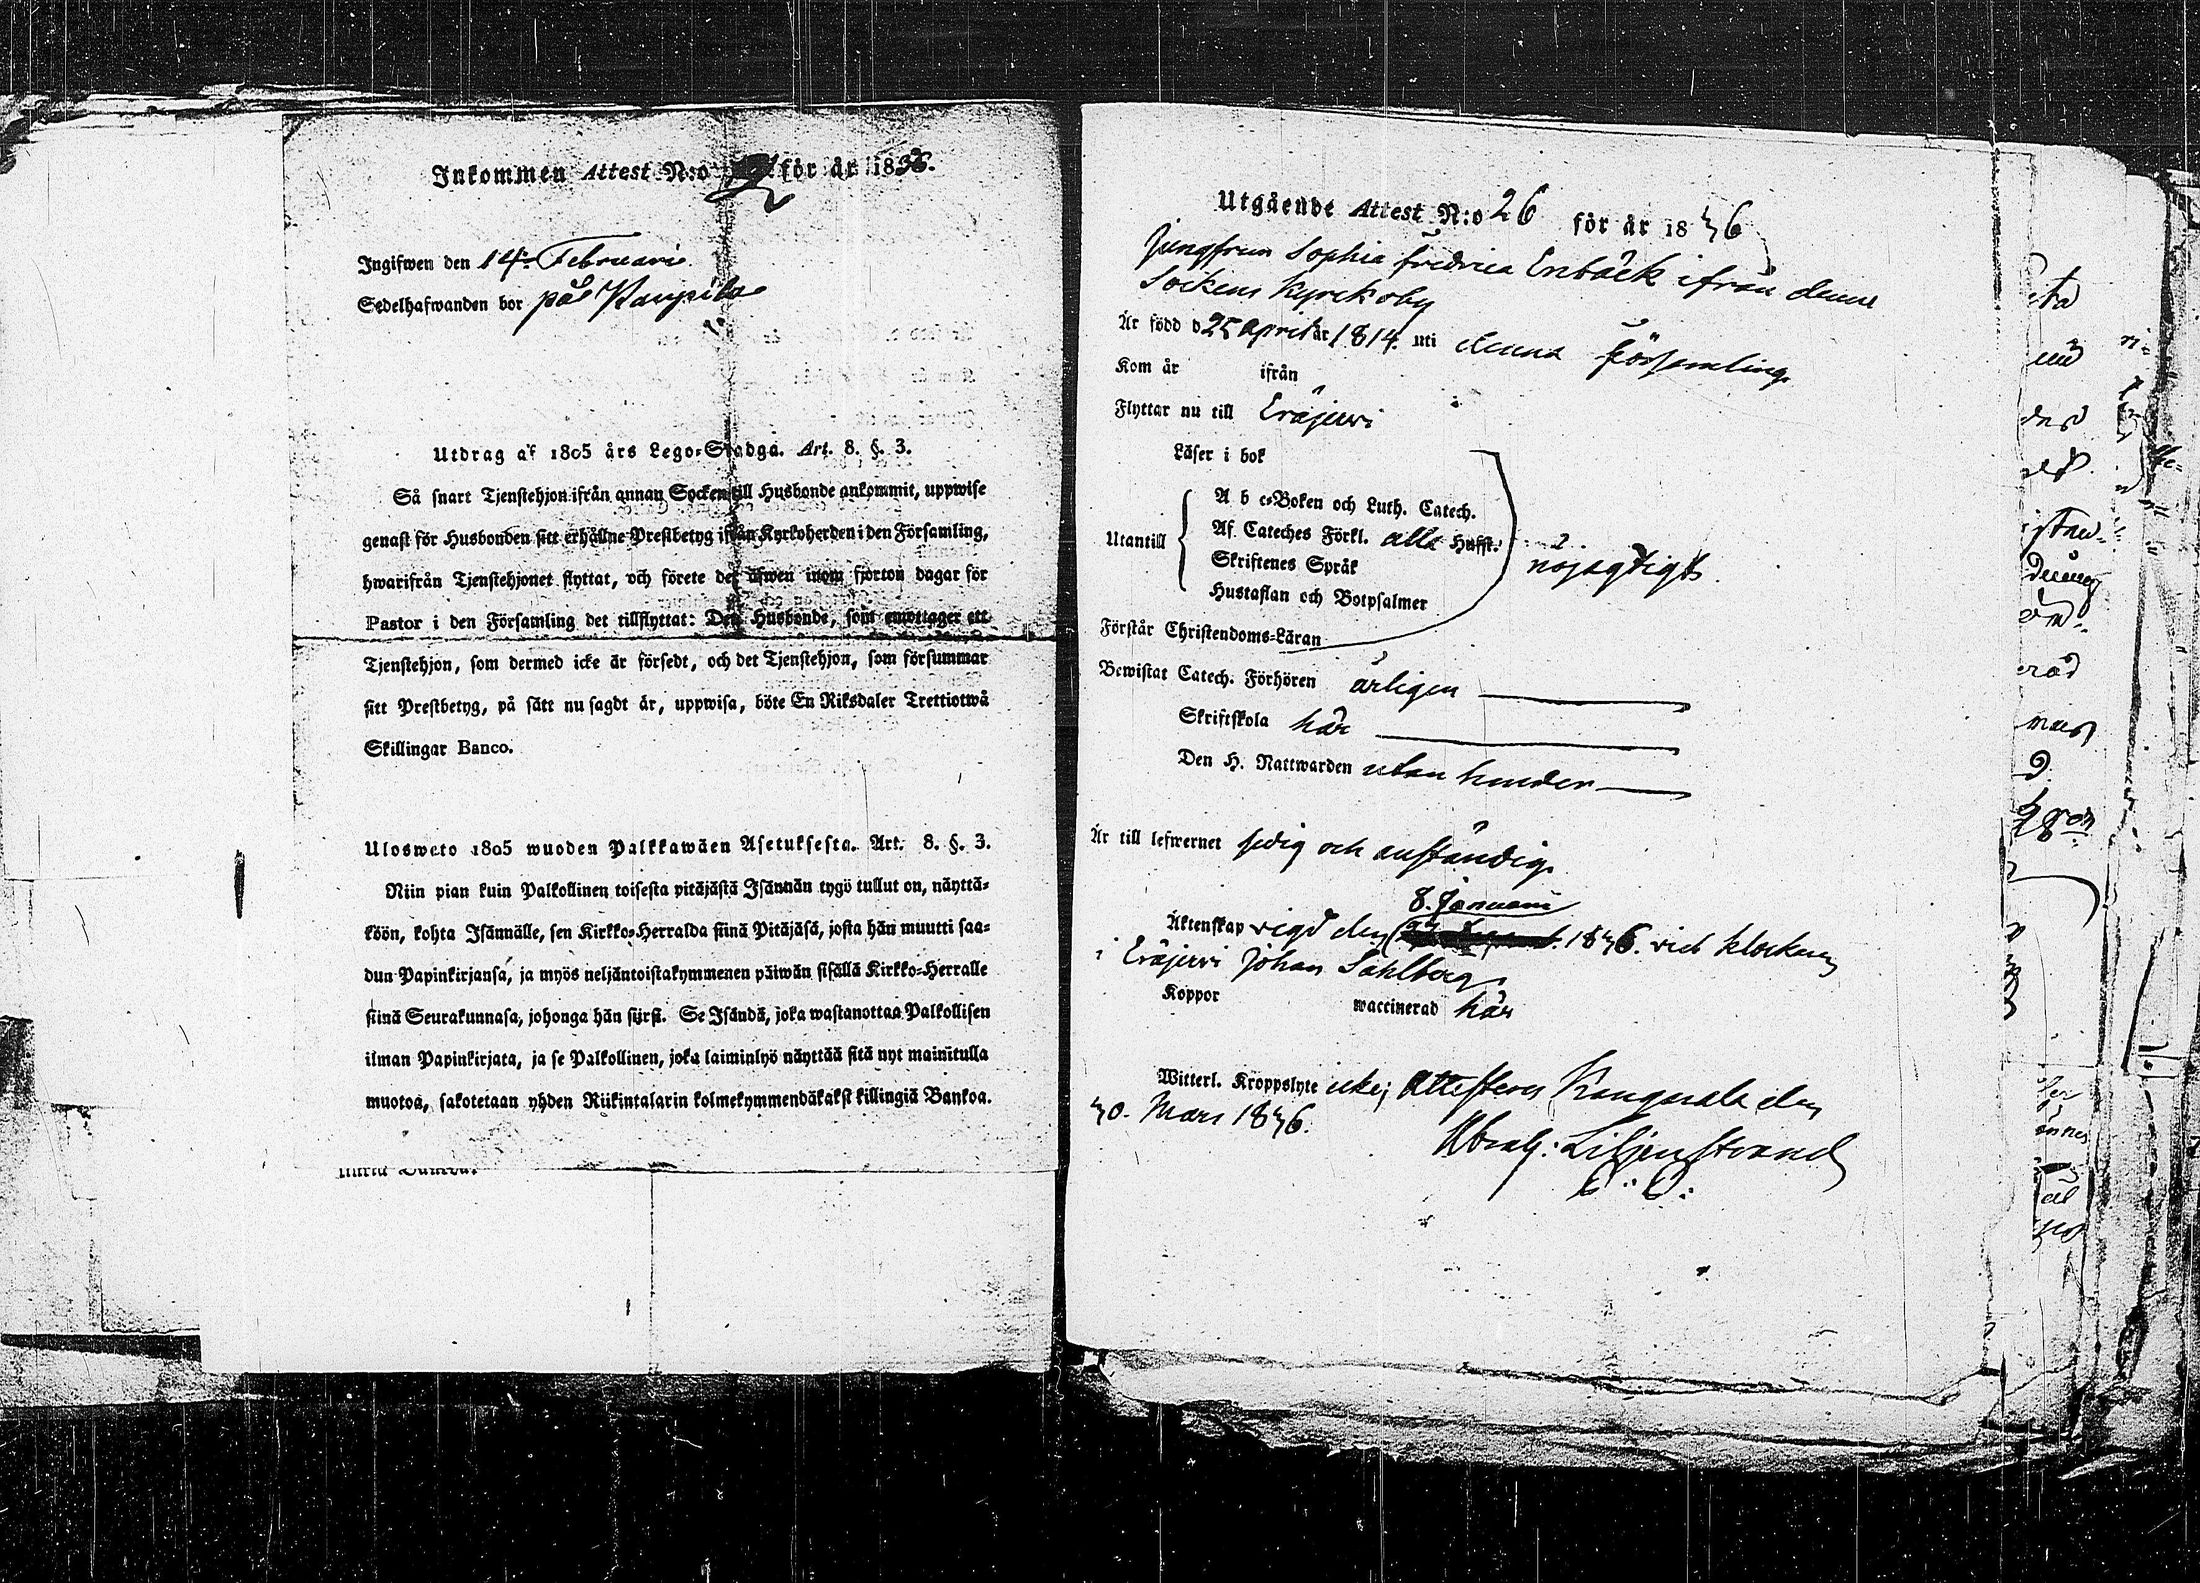 Inkommen Attest N:o 2 för år 1836.
Ingifwen den 14 Februari
Sedelhafwanden bor på
Utdrag af 1805 års Lego-Stadga. Art. 8. §. 3.
Så snart Tjenstehjon ifrån annan Socken till Husbonde ankommit, uppwise
genast för Husbonden sitt erhållne Prestbetyg ifrån Kyrkoherden i den Församling,
hwarifrån Tjenstehjonet flyttat, och förete det äfwen inom fjorton dagar för
Pastor i den Församling det tillflyttat: Den Husbonde, som emottager ett
Tjenstehjon, som dermed icke är försedt, och det Tjenstehjon, som försummar
sitt Prestbetyg, på sätt nu sagdt är, uppwisa, böte En Riksdaler Trettiotwå
Skillingar Banco.
Ulosweto 1805 wuoden Palkkawäen Asetuksesta. Art. 8. §. 3.
Niin pian kuin Palkollinen toisesta pitäjästä Isännän tygö tullut on, näyttä-
köön, kohta Isännälle, sen Kirkko-Herralda siinä Pitäjäsä, josta hän muutti saa-
dun Papinkirjansa, ja myös neljäntoistakymmenen päiwän sisällä Kirkko-Herralle
siinä Seurakunnasa, johonga hän siirsi. Se Isändä, joka wastanottaa Palkollisen
ilman Papinkirjata, ja se Palkollinen, joka laiminlyö näyttää sitä nyt mainitulla
muotoa, sakotetaan yhden Riikintalarin kolmekymmendäkaksi killingiä Bankoa.
Utgående Attest N:o 26 för år 1836
Jungfrun Sophia Fredrica Enbäck ifrån denne
Sockens Kyrckoby
Är född d 25 April år 1814. uti denna Församling.
Kom år ifrån
Flyttar nu till Eräjerwi
Läser i bok
A b c-Boken och Luth. Catech.
Utantill Af Cateches Förkl. alla Hufst. nöjagtigt.
Skriftenes Språk
Hustaflan och Botpsalmer
Förstår Christendoms-Läran
Bewistat Catech. Förhören årligen
Skriftskola här
Den H. Nattwarden utan hinder
Är till lefwernet sedig och anständig.
8. Januari
Äktenskap vigd den 1836. vid klockaren
i Eräjerwi Johan Sahlberg
Koppor waccinerad här
Witterl. Kroppslyte icke; Attesteras Kangasala den
30. Mars 1836.
Abrah: Liljenstrand